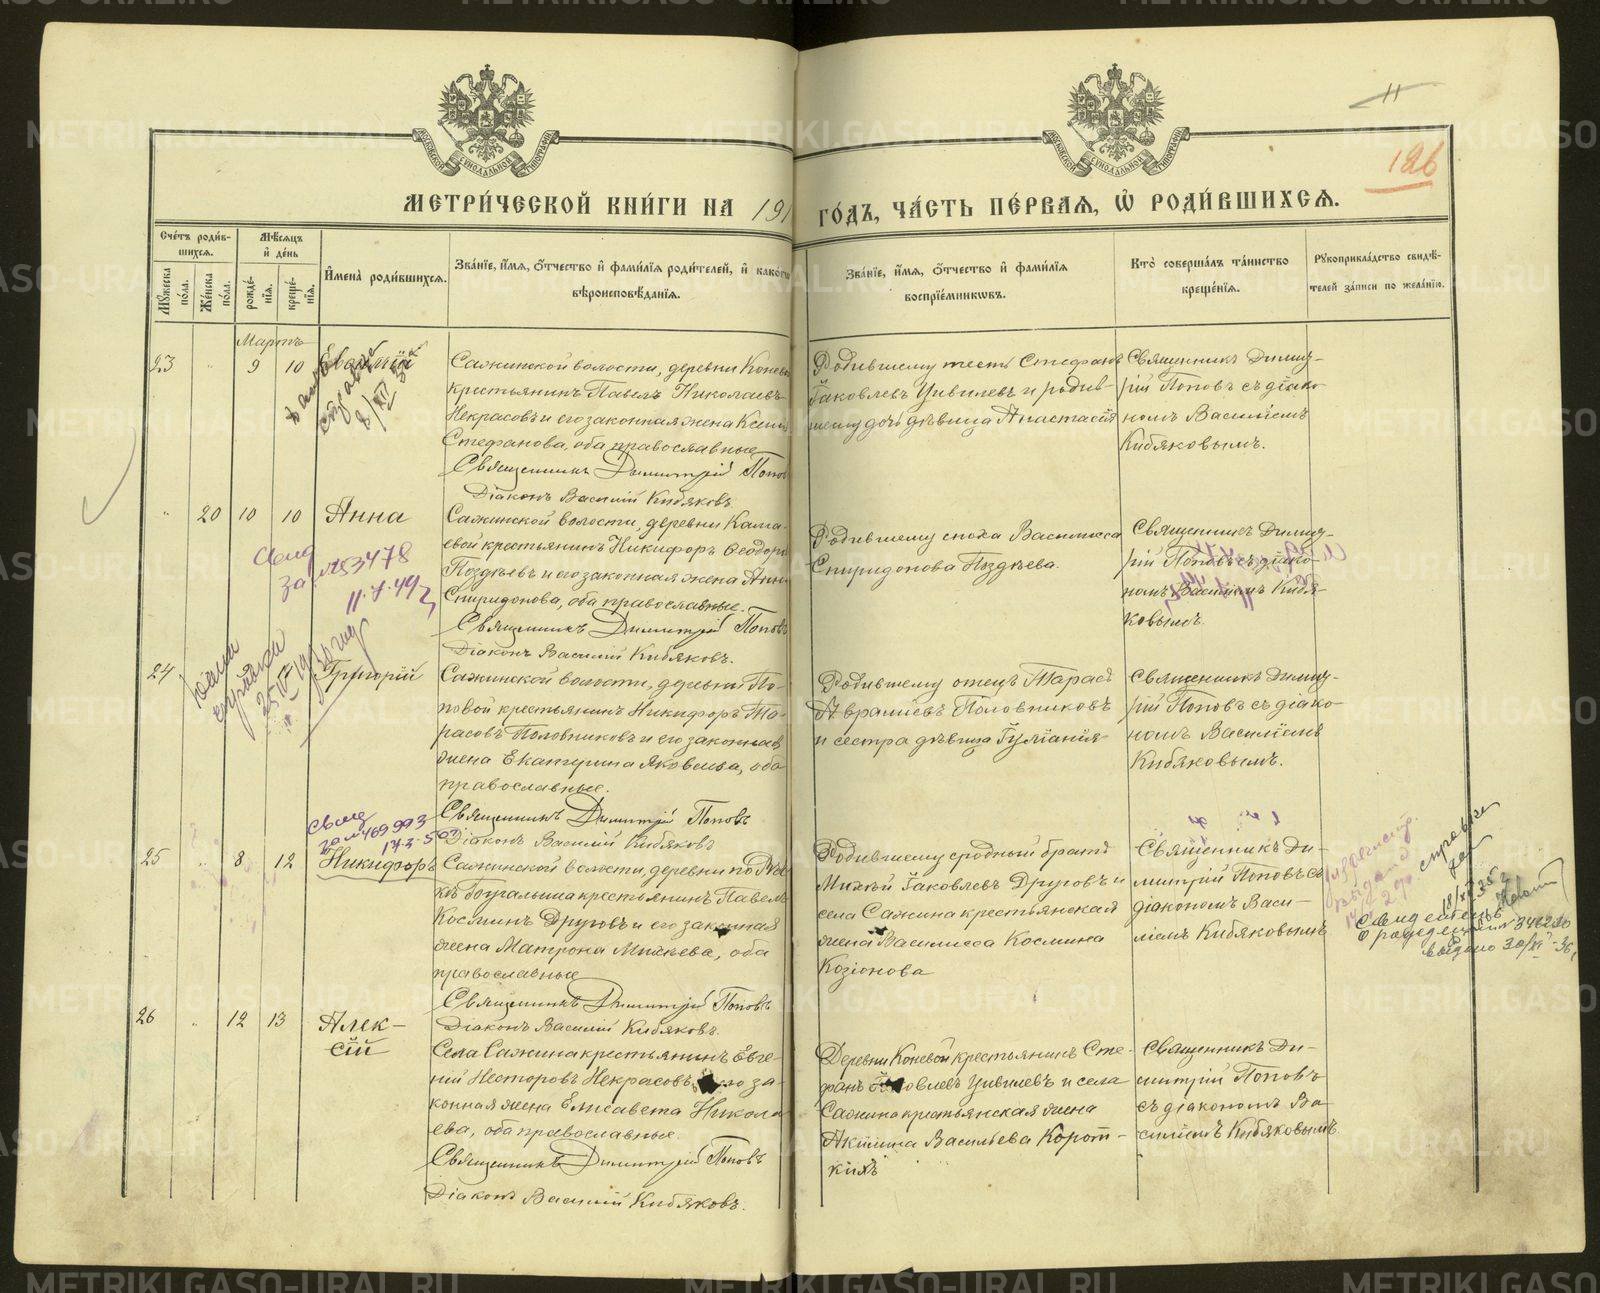 11
126
МЕТРИ́ЧЕСКОЙ КНИ́ГИ НА 191
ГО́ДЪ, ЧА́СТЬ ПЕ́РВАЯ, Ѽ РОДИ́ВШИХСЯ.
Сче́тъ роди́в-
шихся.
Мѣ́сяцъ
и҆ де́нь
И҆мена̀ роди́вшихся.
Зва́нїе, и҆́мя, ѻ҆́тчество и҆ фами́лїя роди́телей, и҆ како́гѡ
вѣроисповѣ́данїя.
Мꙋ́жеска
по́ла.
Же́нска
по́ла.
рожде́-
нїя.
креще́-
нїя.
Зва́нїе, и҆́мя, ѻ҆́тчество и҆ фами́лїя
воспрїе́мникѡвъ.
Кто̀ соверша́лъ та́инство
креще́нїя.
Рꙋкоприкла́дство свидѣ́-
телей за́писи по жела́нїю.
Мартъ
23 " 9 10
Сажинской волости, деревни Конево
крестьянинъ Павелъ Николаевъ
Некрасовъ и его законная жена Ксенія
Стефанова, оба православные
Священникъ Димитрій Поповъ
Діаконъ Василій Кибяковъ
Родившему тесть Стефанъ
Іаковлевъ Цивилевъ и родив-
шему дочь дѣвица Анастасія
Священникъ Димит-
рій Поповъ съ діако-
номъ Василіемъ
Кибяковымъ.
" 20 10 10 Анна
Сажинской волости, деревни Кама-
евой крестьянинъ Никифоръ Ѳеодоровъ
Поздѣевъ и его законная жена Анна
Спиридонова, оба православные.
Священникъ Димитрій Поповъ
Діаконъ Василій Кибяковъ.
Родившему сноха Василисса
Спиридонова Поздѣева.
Священникъ Димит-
рій Поповъ съ діако-
номъ Василіемъ Кибя-
ковымъ.
Свид
за №53478
11.7.49г
24 Григорій
Сажинской волости, деревни По-
повой крестьянинъ Никифоръ Та-
расовъ Половниковъ и его законная
жена Екатерина Яковлева, оба
православные.
Священникъ Димитрій Поповъ
Діаконъ Василій Кибяковъ
Родившему отецъ Тарасъ
Авраміевъ Половниковъ
и сестра дѣвица Іуліанія
Священникъ Димит-
рій Поповъ съ діако-
номъ Василіемъ
Кибяковымъ.
Свид
за №469993
25 " 8 12 Никифоръ
Сажинской волости, деревни
крестьянинъ Павелъ
Космин Друговъ и его законная
жена Матрона Михеева, оба
православные
Священникъ Димитрій Поповъ
Діаконъ Василій Кибяковъ.
Родившему сродный братъ
Михей Іаковлевъ Друговъ и
села Сажина крестьянская
жена Василисса Космина
Козіонова
Священникъ Ди-
митрій Поповъ съ
діакономъ Васи-
ліемъ Кибяковымъ
справка
26 " 12 13 Алек-
сій
Села Сажина крестьянинъ Евге-
ній Несторовъ Некрасовъ его за-
конная жена Елисавета Никола-
ева, оба православные.
Священникъ Димитрій Поповъ
Діаконъ Василій Кибяковъ.
Деревни Коневой крестьянинъ Сте-
фанъ Іаковлевъ Цивилевъ и села
Сажина крестьянская жена
Акилина Васильева Корот-
кихъ
Священникъ Ди-
митрій Поповъ
съ діакономъ Ва-
силіемъ Кибяковымъ.
METRIKI.GASO-URAL.RU